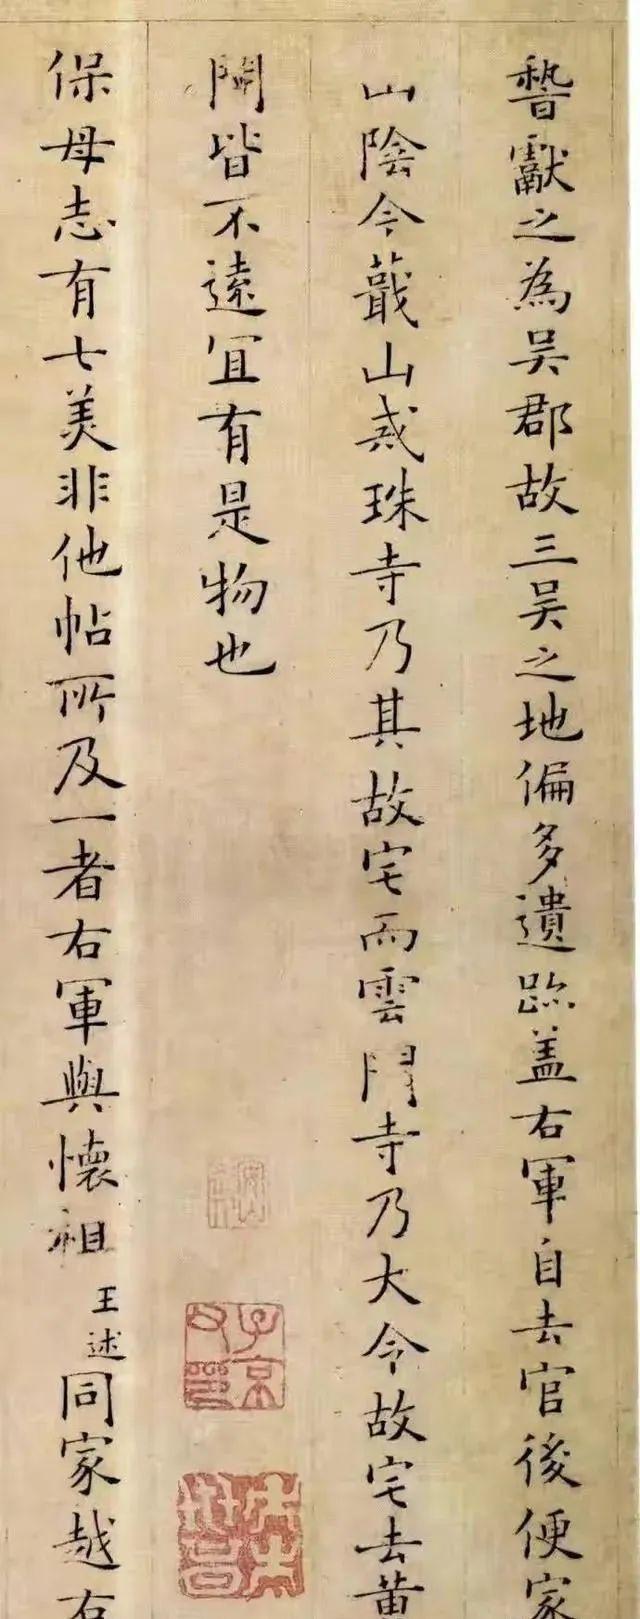 獻之為吳郡故三吳之地偏多遺跡盖右軍自去官後便家
山陰今蕺山戒珠寺乃其故宅而雲門寺乃大令故宅去黄
閍皆不遠宜有是物也
子京父印
保母志有七美非他帖所及一者右軍與懷祖王述同家越右